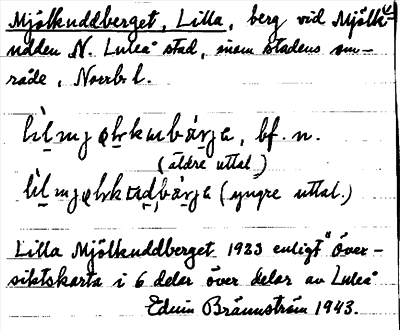 Mjölkuddberget, Lilla, berg vid Mjölk-
udden N. Luleå stad, inom stadens om-
råde, Norrb. l.
bf. n.
(äldre uttal)
(yngre uttal.)
Lilla Mjölkuddberget 1933 enligt "Över-
siktskarta i 6 delar över delar av Luleå
Edvin Brännström 1943.